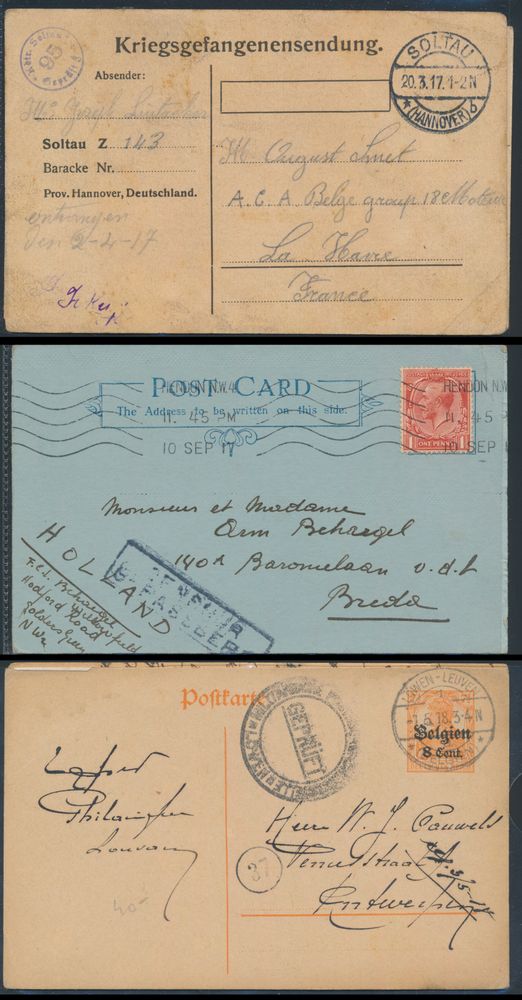 Kriegsgefangenensendung.
95
Absender:
SOLTAU
20.3.17.1-2N
* (HANNOVER) b
Joseph
Soltau Z 143
Baracke Nr.
Prov. Hannover, Deutschland.
ontvangen
den 2-4-17
Mr August Smet
A.C.A Belge group. 18
La Havre
France
POST CARD
The Address to be written on this side.
HENDON N.W.4
11. 45 PM
10 SEP 17
HENDON N.W
11. 45 P
10 SEP 1
ONE PENNY
Monsieur et Madame
Arm Behaegel
140A Baronielaan v.d.t
Breda
HOLLAND
CENSUUR
GEPASSEERD
F.C.J. Behaegel
Road
Golders Green
NW2
Postkarte
GEPRÜFT
LÖWEN-LEUVEN
-1.5.18.3-4N
Belgien
8 Cent.
Louvain
37
Herr W. J. Pauwels
Venusstraat
Antwerpen
40-